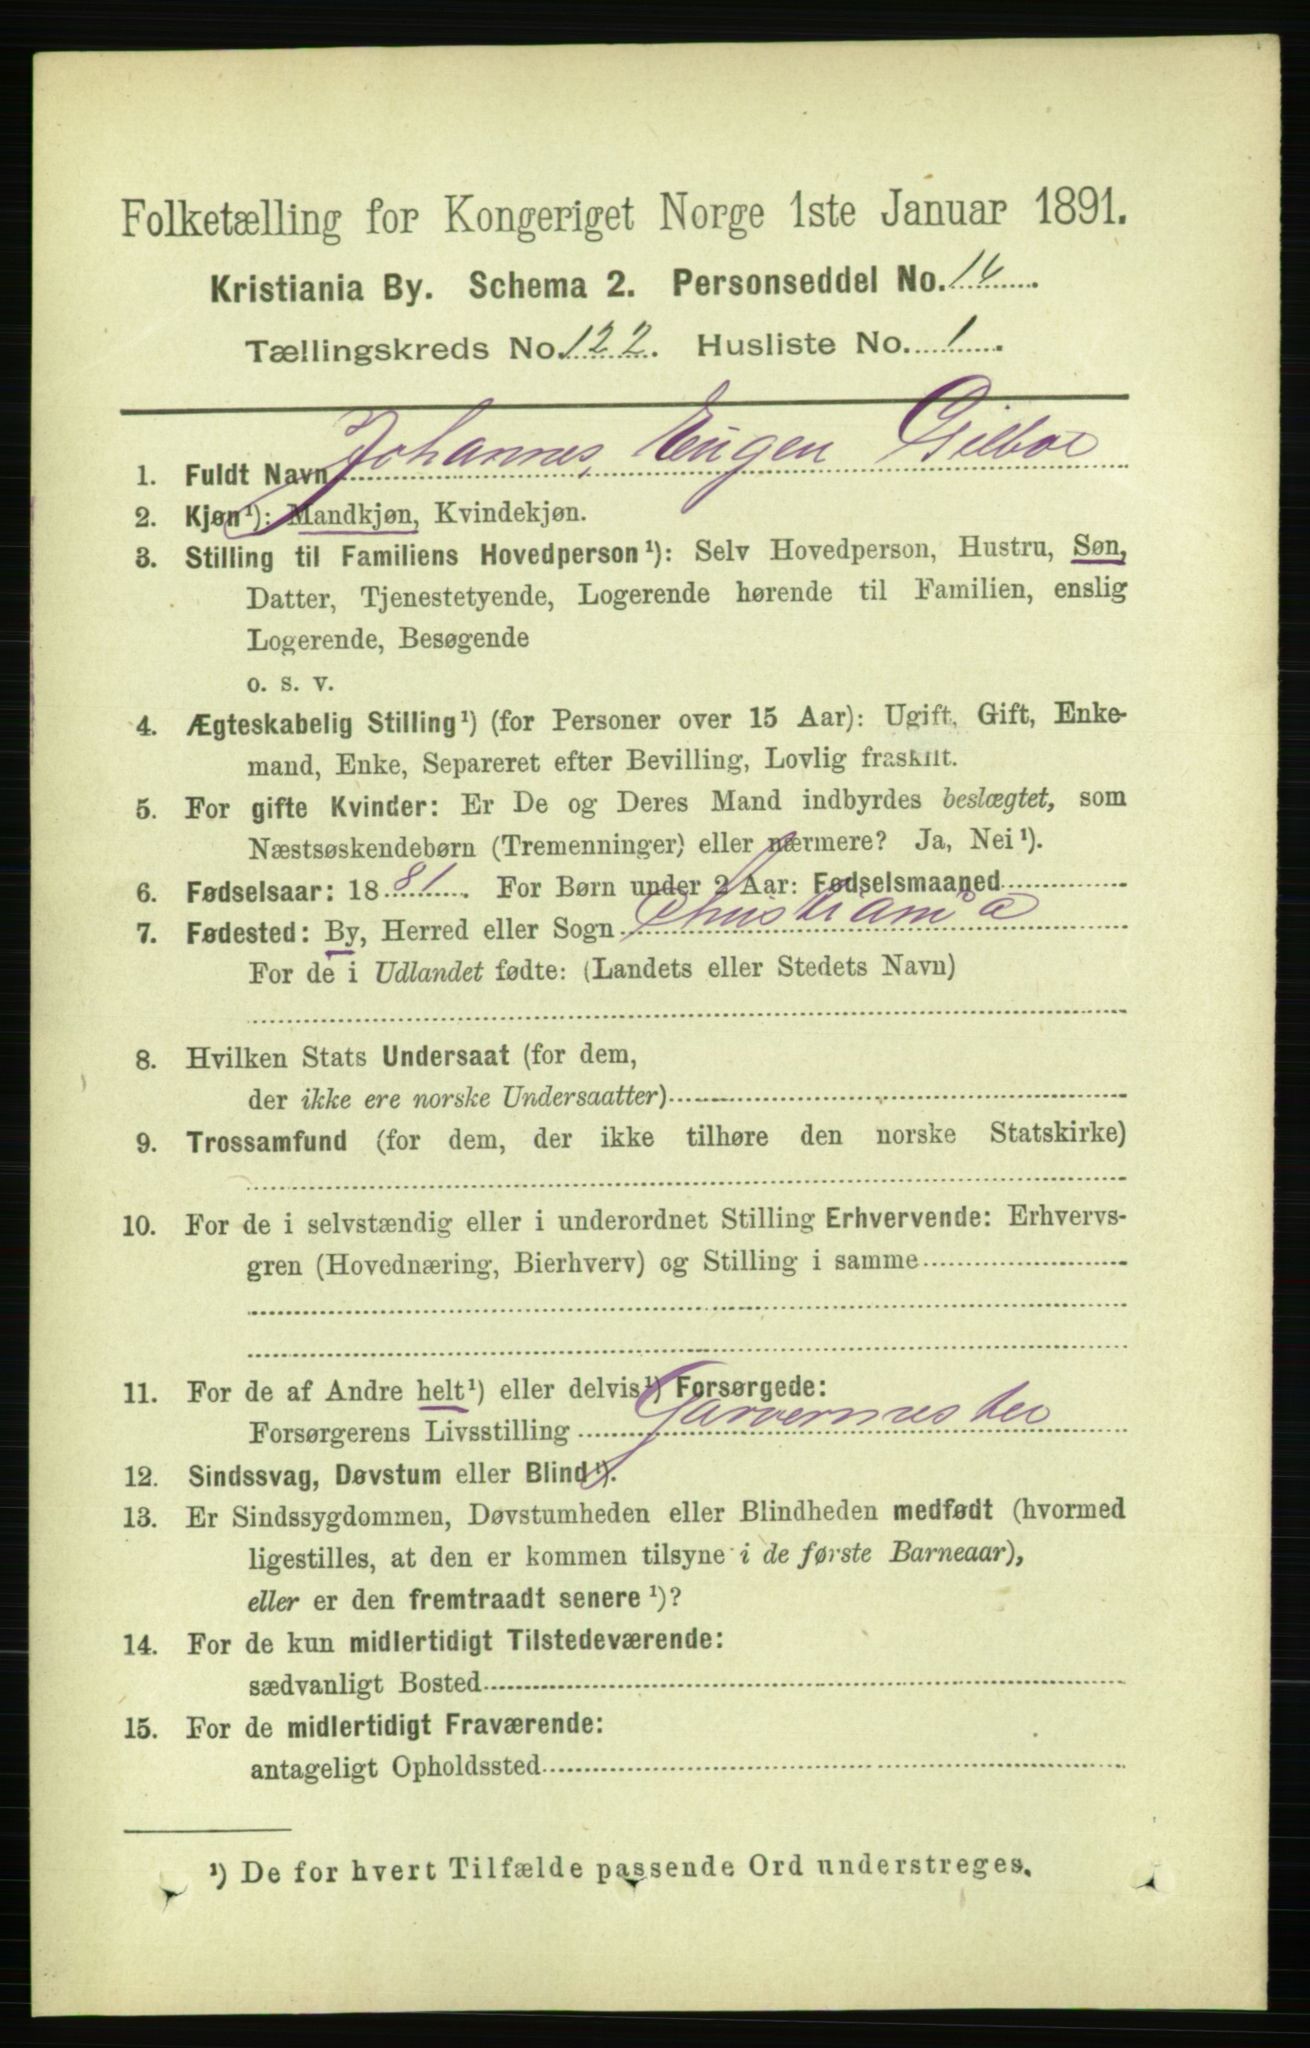 Folketælling for Kongeriget Norge 1ste Januar 1891.
Kristiania By. Schema 2. Personseddel No. 14.
Tællingskreds No. 122. Husliste No. 1.
1. Fuldt Navn Johannes Eugen Gilboe
2. Kjøn¹): Mandkjøn, Kvindekjøn.
3. Stilling til Familiens Hovedperson¹): Selv Hovedperson, Hustru, Søn,
Datter, Tjenestetyende, Logerende hørende til Familien, enslig
Logerende, Besøgende
o. s. v.
4. Ægteskabelig Stilling¹) (for Personer over 15 Aar): Ugift, Gift, Enke-
mand, Enke, Separeret efter Bevilling, Lovlig fraskilt.
5. For gifte Kvinder: Er De og Deres Mand indbyrdes beslægtet, som
Næstsøskendebørn (Tremenninger) eller nærmere? Ja, Nei¹).
6. Fødselsaar: 1881. For Børn under 2 Aar: Fødselsmaaned
7. Fødested: By, Herred eller Sogn Christiania
For de i Udlandet fødte: (Landets eller Stedets Navn)
8. Hvilken Stats Undersaat (for dem,
der ikke ere norske Undersaatter)
9. Trossamfund (for dem, der ikke tilhøre den norske Statskirke)
10. For de i selvstændig eller i underordnet Stilling Erhvervende: Erhvervs-
gren (Hovednæring, Bierhverv) og Stilling i samme
11. For de af Andre helt¹) eller delvis¹) Forsørgede:
Forsørgerens Livsstilling Garvermester
12. Sindssvag, Døvstum eller Blind¹).
13. Er Sindssygdommen, Døvstumheden eller Blindheden medfødt (hvormed
ligestilles, at den er kommen tilsyne i de første Barneaar),
eller er den fremtraadt senere¹)?
14. For de kun midlertidigt Tilstedeværende:
sædvanligt Bosted
15. For de midlertidigt Fraværende:
antageligt Opholdssted
¹) De for hvert Tilfælde passende Ord understreges.